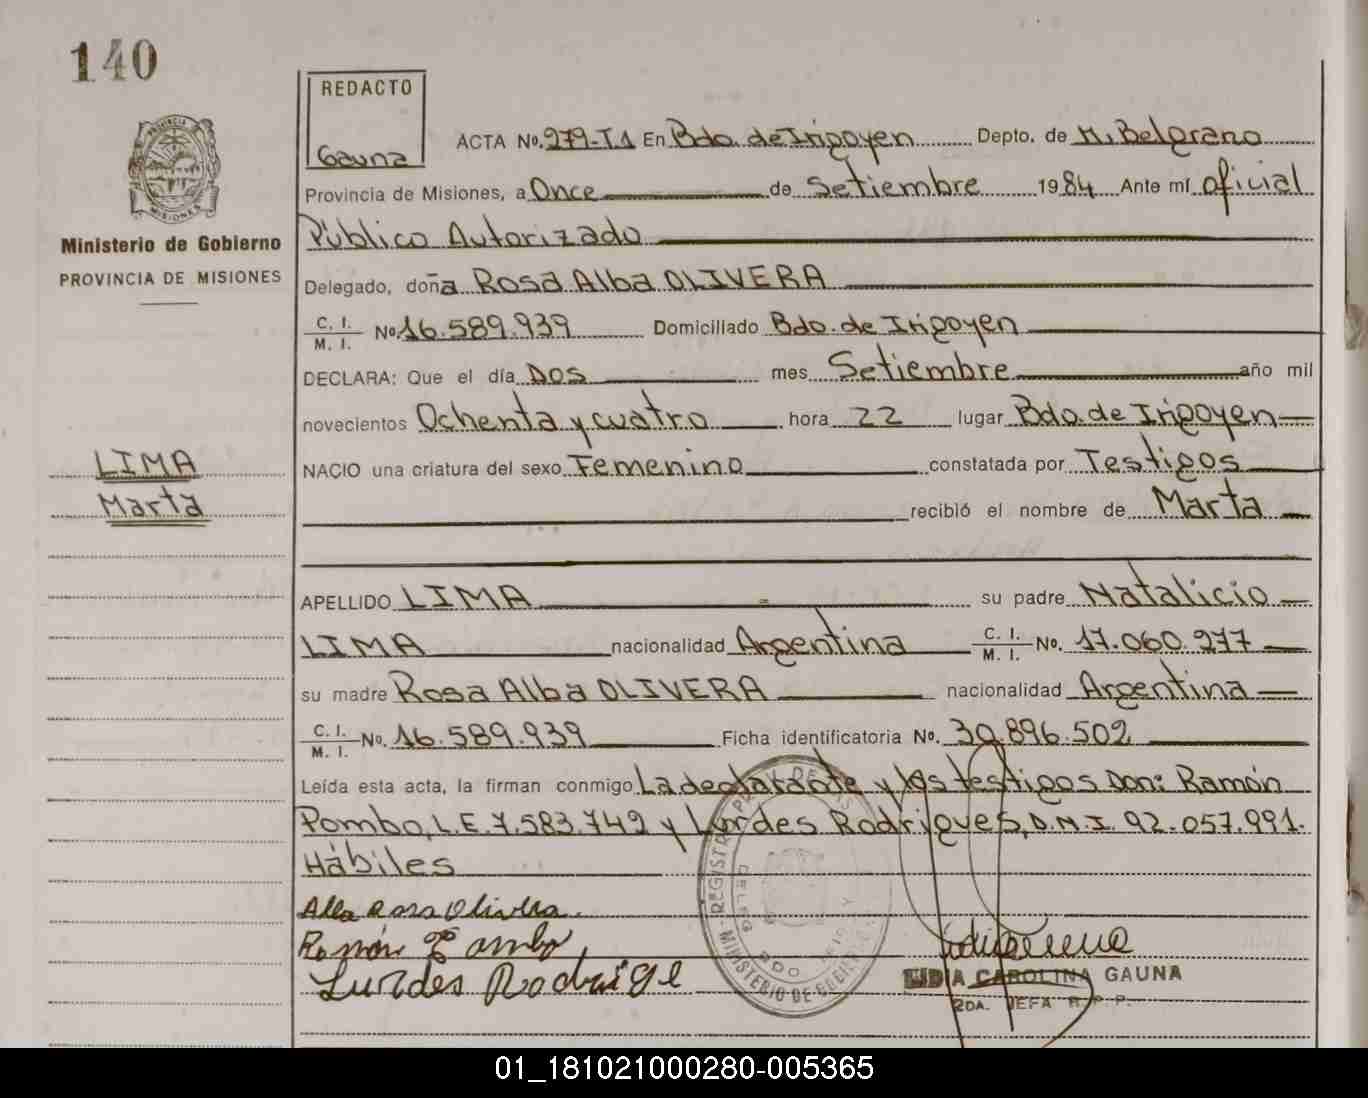 140
REDACTO
Gauna
PROVINCIA
MISIONES
Ministerio de Gobierno
PROVINCIA DE MISIONES
LIMA
Marta
ACTA No. 279-T.1 En Bdo. de Irigoyen Depto. de M. Belgrano
Provincia de Misiones, a Once de Setiembre 1984 Ante mí oficial
Público Autorizado
Delegado, doña Rosa Alba OLIVERA
C. I.
M. I. No. 16.589.939 Domiciliado Bdo. de Irigoyen
DECLARA: Que el día DOS mes Setiembre año mil
novecientos Ochenta y cuatro hora 22 lugar Bdo. de Irigoyen
NACIO una criatura del sexo Femenino constatada por Testigos
recibió el nombre de Marta
APELLIDO LIMA su padre Natalicio
LIMA nacionalidad Argentina C. I.
M. I. No. 17.060.277
su madre Rosa Alba OLIVERA nacionalidad Argentina
C. I.
M. I. No. 16.589.939 Ficha identificatoria No. 30.896.502
Leída esta acta, la firman conmigo La declarante y los testigos Don: Ramón
Pombo, L.E. 7.583.742 y Lurdes Rodrigues, D.N.I. 92.057.991.
Hábiles
Alba Rosa Olivera
Ramón Pombo
Lurdes Rodrige
MINISTERIO DE GOBIERNO
LIDIA CAROLINA GAUNA
2DA. JEFA R.P.P.
01_181021000280-005365